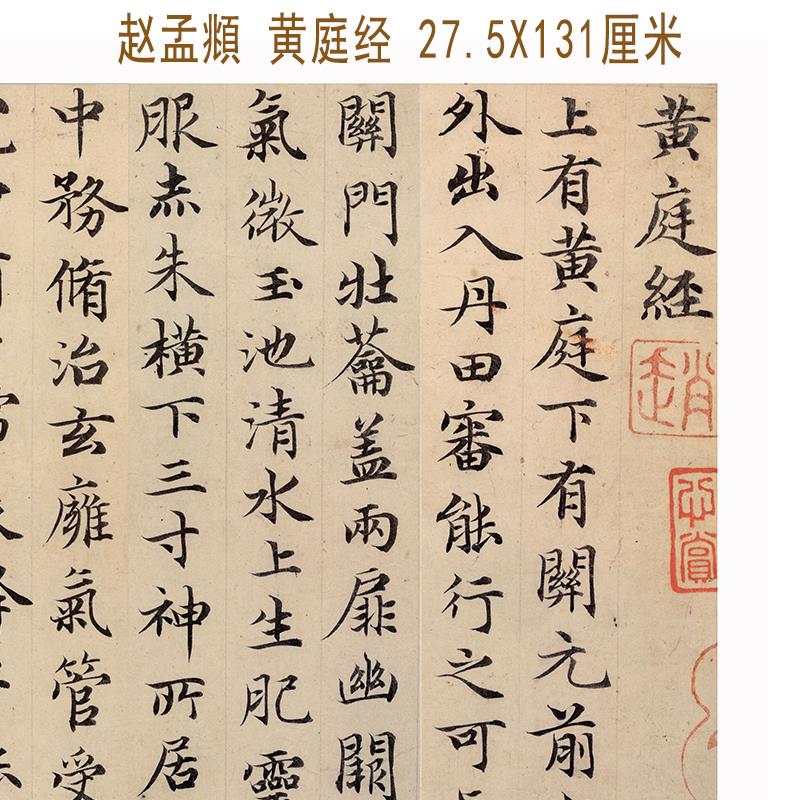 赵孟頫 黄庭经 27.5X131厘米
黄庭經
上有黄庭下有關元前
外出入丹田審能行之可
關門壯蘥盖兩扉幽闕
氣微玉池清水上生肥靈
服赤朱横下三寸神所居
中務脩治玄癰氣管受
趙
心賞